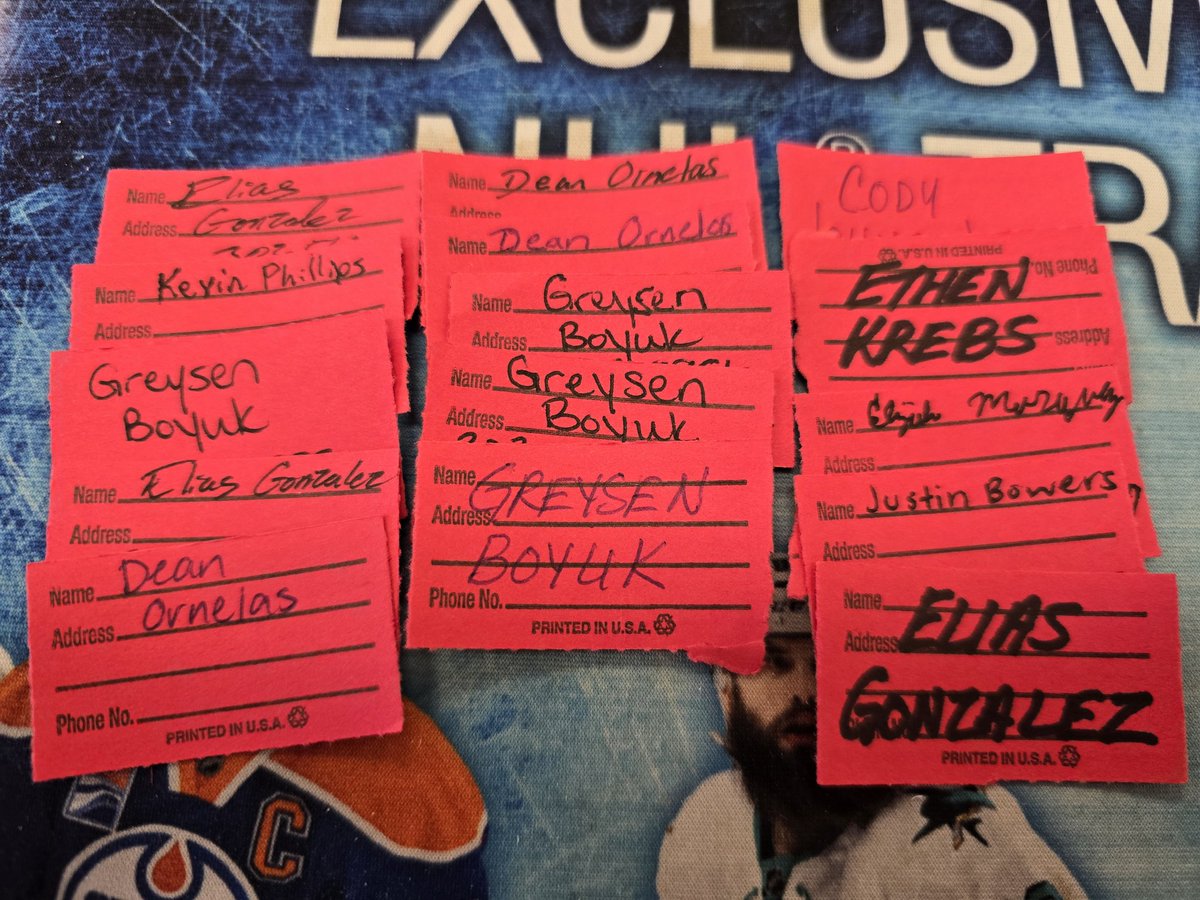 EXCLUSIV
NHL® TRA
Name Elias
Address Gonzalez
Name Kevin Phillips
Address
Greysen
Boyuk
Name Elias Gonzalez
Address
Name Dean
Address Ornelas
Phone No.
PRINTED IN U.S.A.
Name Dean Ornelas
Address
Name Dean Ornelas
Name Greysen
Address Boyuk
Name Greysen
Address Boyuk
Name GREYSEN
Address
BOYUK
Phone No.
PRINTED IN U.S.A.
CODY
PRINTED IN U.S.A.
Phone No.
ETHEN
KREBS
Address
Name Elijah
Address
Name Justin Bowers
Address
Name ELIAS
Address
GONZALEZ
PRINTED IN U.S.A.
C